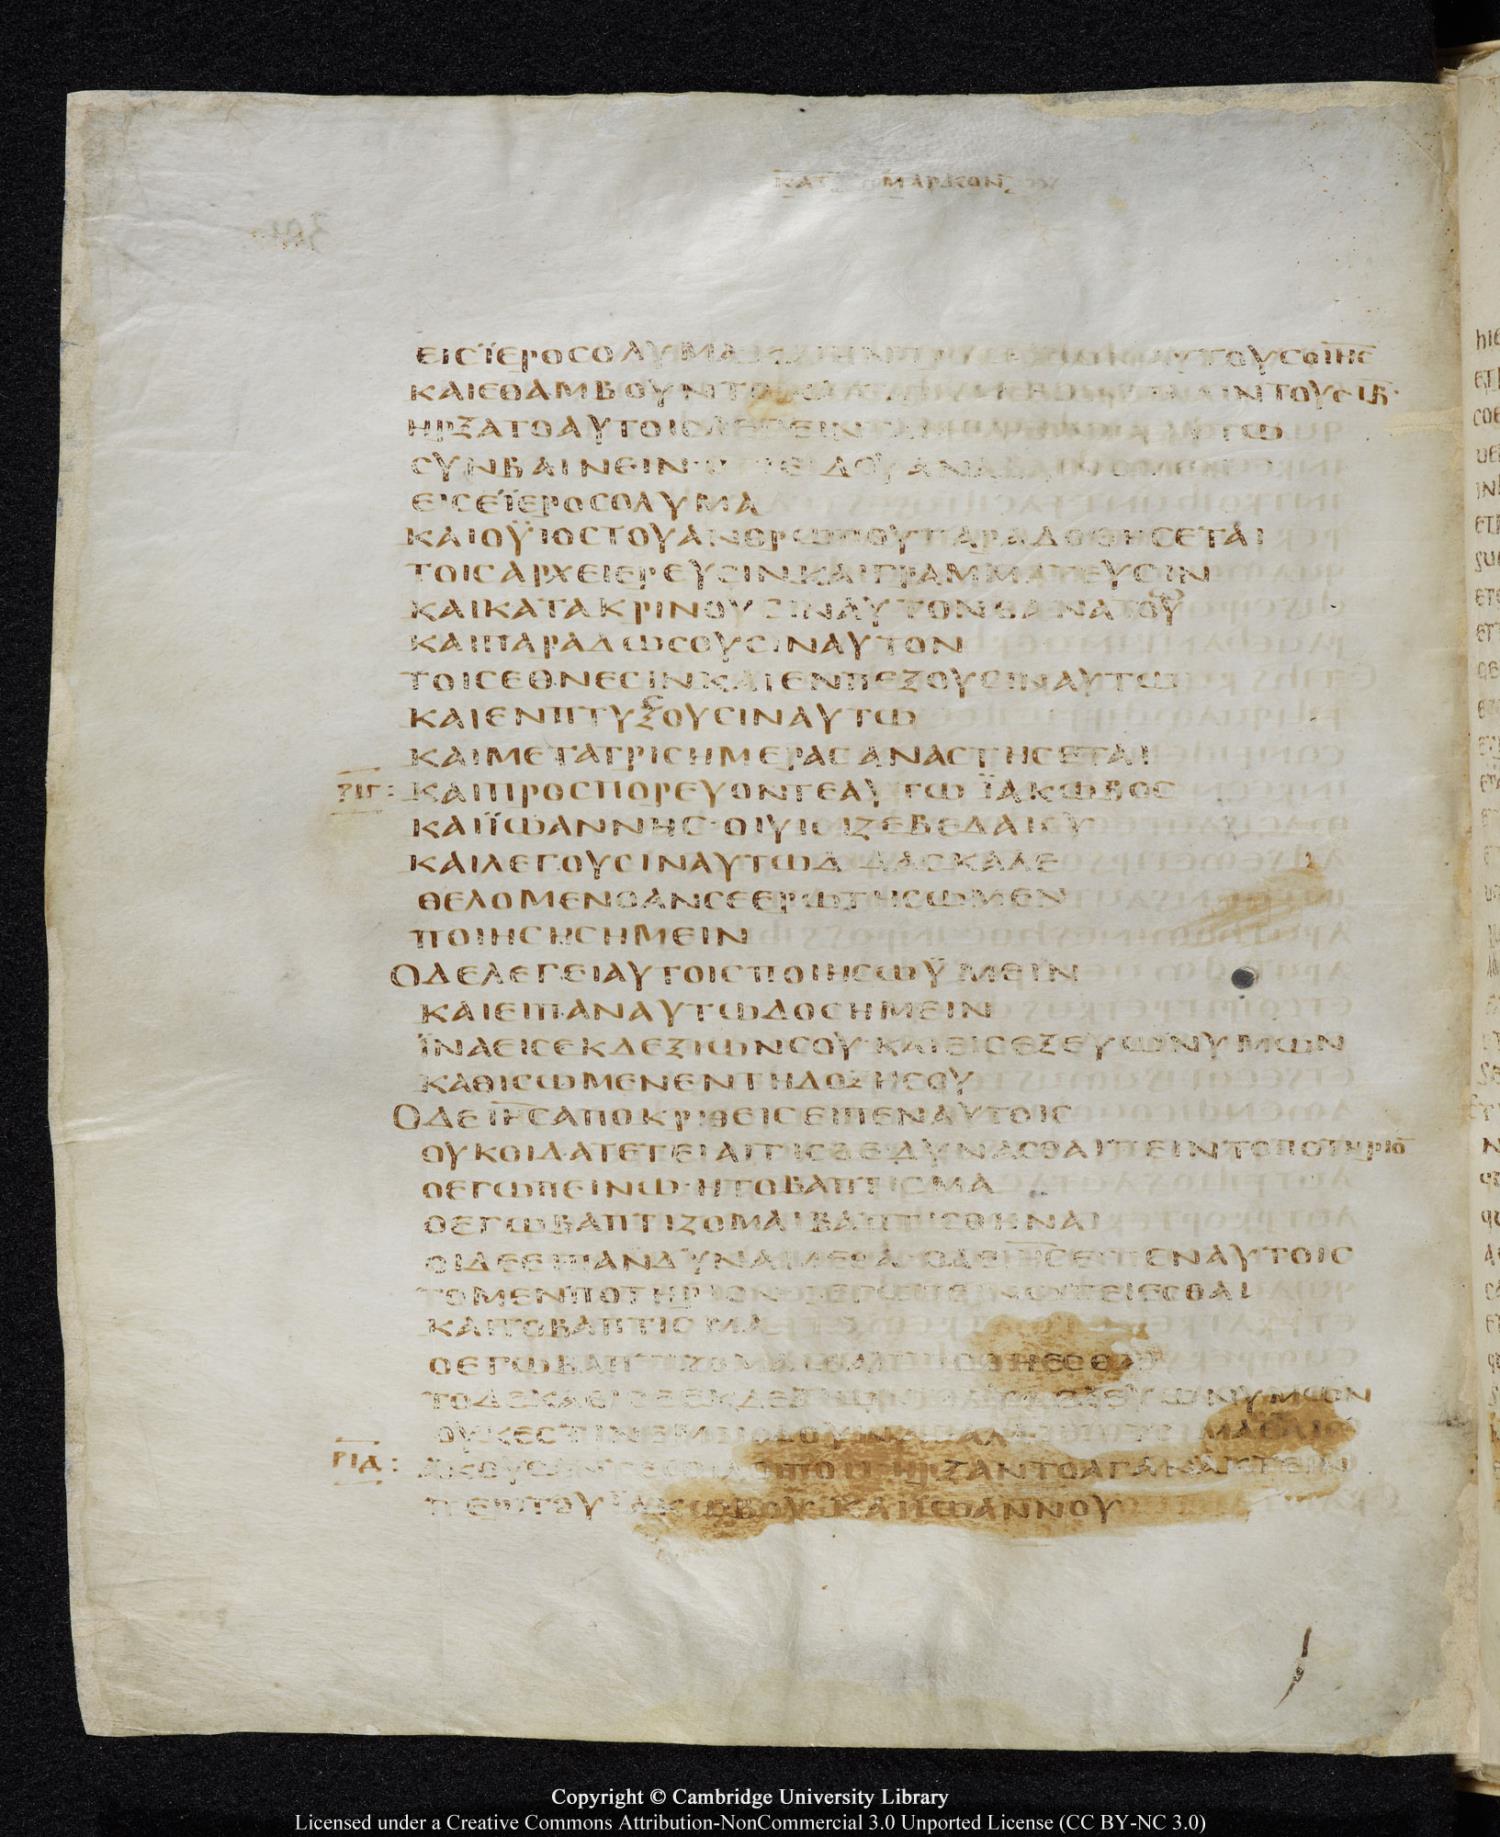 ΚΑΤ ΜΑΡΚΟΝ
ΕΙCΪΕΡΟCΟΛΥΜΑ ΑΥΤΟΥCΟΙΗC
ΚΑΙΕΘΑΜΒΟΥΝΤΟ ΤΟΥCΙΒ·
ΗΡΞΑΤΟΑΥΤΟΙCΛΕΓΕΙΝ
CΥΝΒΑΙΝΕΙΝ ΕΙΔΟΥΑΝΑΒΑΙΝΟΜΕΝ
ΕΙCΕΪΕΡΟCΟΛΥΜΑ
ΚΑΙΟΫΙΟCΤΟΥΑΝΘΡΩΠΟΥΠΑΡΑΔΟΘΗCΕΤΑΙ
ΤΟΙCΑΡΧΕΙΕΡΕΥCΙΝΚΑΙΓΡΑΜΜΑΤΕΥCΙΝ
ΚΑΙΚΑΤΑΚΡΙΝΟΥCΙΝΑΥΤΟΝΘΑΝΑΤΟΥ
ΚΑΙΠΑΡΑΔΩCΟΥCΙΝΑΥΤΟΝ
ΤΟΙCΕΘΝΕCΙΝΚΑΙΕΝΠΕΖΟΥCΙΝΑΥΤΩ
ΚΑΙΕΝΠΤΥΞΟΥCΙΝΑΥΤΩ
ΚΑΙΜΕΤΑΤΡΙCΗΜΕΡΑCΑΝΑCΤΗCΕΤΑΙ
ΡΙΓ: ΚΑΙΠΡΟCΠΟΡΕΥΟΝΤΕΑΥΤΩΪΑΚΩΒΟC
ΚΑΙΪΩΑΝΝΗC·ΟΙΥΙΟΙΖΕΒΕΔΑΙΟΥ
ΚΑΙΛΕΓΟΥCΙΝΑΥΤΩΔΙΔΑCΚΑΛΕ
ΘΕΛΟΜΕΝΟΑΝCΕΕΡΩΤΗCΩΜΕΝ
ΠΟΙΗCΗCΗΜΕΙΝ
ΟΔΕΛΕΓΕΙΑΥΤΟΙCΠΟΙΗCΩΫΜΕΙΝ
ΚΑΙΕΙΠΑΝΑΥΤΩΔΟCΗΜΕΙΝ
ΪΝΑΕΙCΕΚΔΕΞΙΩΝCΟΥ·ΚΑΙΕΙCΕΞΕΥΩΝΥΜΩΝ
ΚΑΘΙCΩΜΕΝΕΝΤΗΔΟΞΗCΟΥ
ΟΔΕΙΗCΑΠΟΚΡΙΘΕΙCΕΙΠΕΝΑΥΤΟΙC
ΟΥΚΟΙΔΑΤΕΤΕΙΑΙΤΙCΘΕΔΥΝΑCΘΑΙΠΕΙΝΤΟΠΟΤΗΡΙΟ̅
ΟΕΓΩΠΕΙΝΩ·ΗΤΟΒΑΠΤΙCΜΑ
ΟΕΓΩΒΑΠΤΙΖΟΜΑΙΒΑΠΤΙCΘΗΝΑΙ
ΟΙΔΕΕΙΠΑΝΔΥΝΑΜΕΘΑ·ΟΔΕΙΗCΕΙΠΕΝΑΥΤΟΙC
ΤΟΜΕΝΠΟΤΗΡΙΟΝΟΕΓΩΠΕΙΝΩΠΕΙΕCΘΑΙ
ΚΑΙΤΟΒΑΠΤΙCΜΑ
ΟΕΓΩΒΑΠΤΙΖΟΜΑΙΒΑΠΤΙCΘΗCΕCΘΑΙ
ΤΟΔΕΚΑΘΕΙCΕΕΚΔΕΞΙΩΝ ΕΞΕΥΩΝΥΜΩΝ
ΟΥΚΕCΤΙΝΕΜΟΝΔΟΥΝΑΙ
ΡΙΔ: ΑΚΟΥCΑΝΤΕCΟΙΛΟΙΠΟΙΗΡΞΑΝΤΟΑΓΑΝΑΚΤΕΙΝ
ΠΕΡΙΤΟΥΪΑΚΩΒΟΥΚΑΙΪΩΑΝΝΟΥ
Copyright © Cambridge University Library
Licensed under a Creative Commons Attribution-NonCommercial 3.0 Unported License (CC BY-NC 3.0)